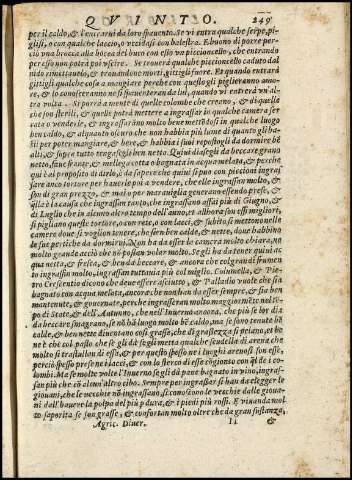 QVINTIO. 249
per il caldo, & l'enterarui da loro spauento. Se vi entra qualche serpe, pi-
glisi, o con qualche laccio, o vccidasi con balestra. E buono il porre per-
ciò vna broccia alla bocca del buco con esso vn piccioncello, che entrando
per esso non potrà poi vscire. Se trouerà qualche piccioncello caduto dal
nido rimettauelo, & trouandone morti, gittigli fuore. Et quando entrarà
gittigli qualche cosa a mangiare perche con questo gli piglieranno amo-
re, & lo conosceranno ne si spauenteran da lui, quando vi entrerà vn'al-
tra volta. Si potrà a mente di quelle colombe che creano, & di quelle
che son sterili, & quelle potrà mettere a ingrassar in qualche camera ser
rata o venderle, & ingrassar ino molto bene mettédosi in qualche luogo
ben caldo, & alquanto oscuro che non habbia più lume di quanto gli ba-
sti per poter mangiare, & bere, & habbia i suoi repostogli da dormire bé
alti, & sopra tutto tengasegli ben netto. Quiui diasigli da beccare grano
netto, faue frante, & mellega cotta o bagnata in acqua melata, & perche
qui è al proposito di dirlo, è da sapere che quiui si puo con piccioni ingras
sare anco tortore per hauerle poi a vendere, che elle ingrassan molto, &
son di gran prezzo, & mai o per marauiglia generan essendo prese, &
alla è la causa che ingrassan tanto, che ingrassano assai piu di Giugno, &
di Luglio che in alcuno altro tempo dell'anno, et allhora son esti migliori,
si pigliano queste tortore, o con rete, o con lacci, & subito si mettono nelle
camere doue si vogliono tenere, che sien ben calde, & nette, doue habbino
de sue pertiche da dormirui. Non ha da esser la camera molto chiara, nò
molto grande acciò che nó possan volar molto. Se gli ha da tener quiui ac
qua netta, & fresca, & ben da beccare, & ancora che col grano & frumen-
to ingrassin molto, ingrassan tuttauia più col miglio. Columella, & Pie-
tro Crescentio dicono che deue essere asciutto, & Palladio vuole che sia
bagnato con acqua melata, ancora che non han da esser sempre, & sia ben
mantenute, & gouernate, perche ingrasseran molto maggiorméte nel tẽ-
po di State, & dell'Autunno, che nell'Inuerno ancora, che più se lor dia
da beccare smagran, se nō hà luogo molto bẽ caldo, ma se sono tenute bẽ
calde, & ben nette diuentano così grasse, che di grassezza si pelano, et bè
ne è che col pasto, che se gli dà se gli metta qualche scudella di arena, che
molto si trastullon di essa, & per questo spesso ne i luoghi arenosi son esse,
perciò spesso presi ne i lacci, & con lo sterco di esse ésgonsi con qlle de i co-
lombi. Ma se molte volte l'Inuerno se gli dà pane bagnato in vino, ingras-
san più che cō alcun'altro cibo. Sempre per ingrassar si han da elegger le
giouani, che le vecchie nō ingrassano, si conoscono le vecchie dalle gioua-
ni dall'hauere la polpa del più più dura, & i piedi più rossi. E viuanda mol
to saporita se son grasse, & confortan molto oltre che da gran sustanza,
Agric. Diuer. Ii &